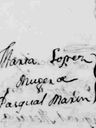 Maria Lopez
Muger de
Pasqual Marin